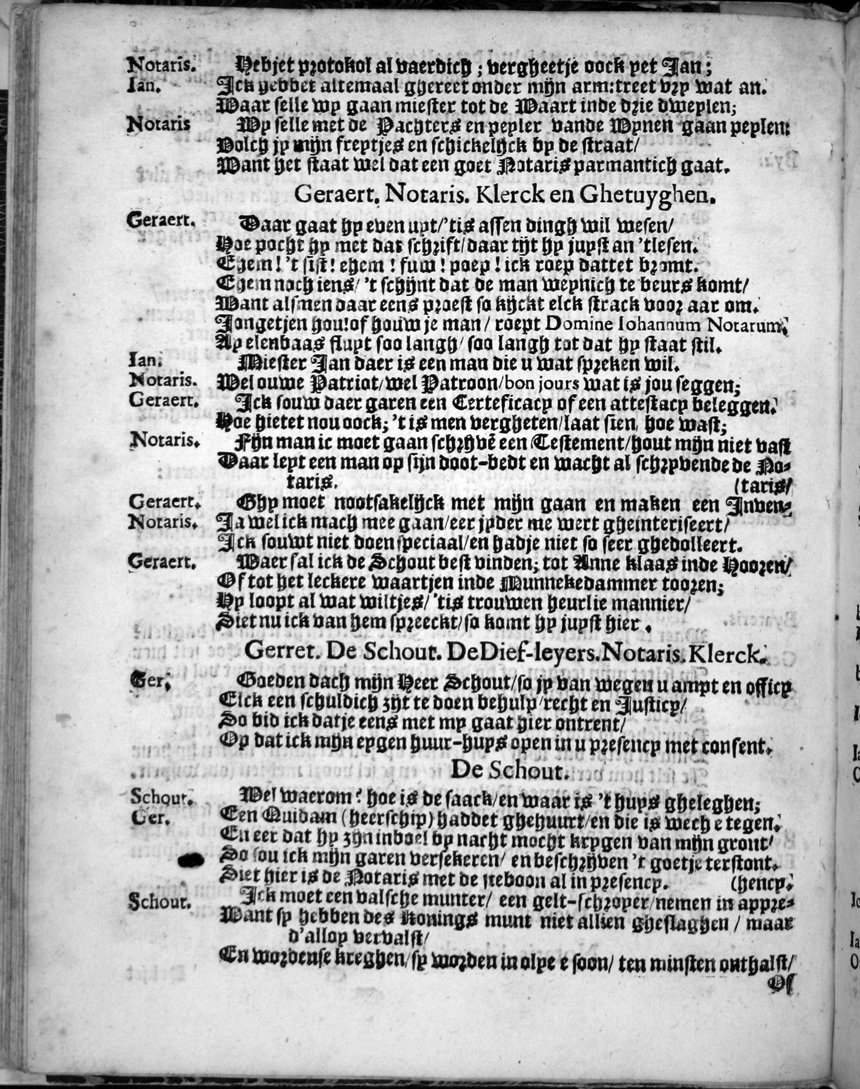 Notaris. Hebjet protokol al vaerdich; vergheetje oock yet Jan;
Ian. Ick hebbet altemaal ghereet onder mijn arm: treet vry wat an.
Waar selle wy gaan miester tot de Waart inde drie dweylen;
Notaris Wy selle met de Pachters en peyler vande Wynen gaan peylen:
Volch jy mijn freytjes en schickelijck by de straat/
Want het staat wel dat een goet Notaris parmantich gaat.
Geraert. Notaris. Klerck en Ghetuyghen.
Geraert. Daar gaat hy even uyt/'tis assen dingh wil wesen/
Hoe pocht hy met dat schrift/daar tijt hy juyst an 'tlesen.
Ehem! 't sist! ehem! fuw! poep! ick roep dattet bromt.
Ehem noch iens/ 't schijnt dat de man weynich te beurs komt/
Want alsmen daar eens proest so kijckt elck strack voor aar om.
Jongetjen hou! of houw je man/ roept Domine Iohannum Notarum;
Ay elenbaas sluyt soo langh/ soo langh tot dat hy staat stil.
Ian. Miester Jan daer is een man die u wat spreken wil.
Notaris. Wel ouwe Patriot/wel Patroon/bon jours wat is jou seggen;
Geraert. Ick souw daer garen een Certeficacy of een attestacy beleggen.
Hoe hietet nou oock; 't is men vergheten/laat sien, hoe wast;
Notaris. Fijn man ic moet gaan schrijvē een Testement/hout mijn niet vast
Daar leyt een man op sijn doot-bedt en wacht al schryvende de No-
taris. (taris/
Geraert. Ghy moet nootsakelijck met mijn gaan en maken een Inven-
Notaris. Ja wel ick mach mee gaan/eer jyder me wert gheinteriseert/
Ick souwt niet doen speciaal/en hadje niet so seer ghedolleert.
Geraert. Waer sal ick de Schout best vinden; tot Anne klaas inde Hooren/
Of tot het leckere waartjen inde Munnekedammer tooren;
Hy loopt al wat wiltjes/ 'tis trouwen heurlie mannier/
Siet nu ick van hem spreeckt/so komt hy juyst hier.
Gerret. De Schout. De Dief-leyers. Notaris. Klerck.
Ger. Goeden dach mijn Heer Schout/so jy van wegen u ampt en officy
Elck een schuldich zijt te doen behulp/recht en Justicy/
So bid ick datje eens met my gaat hier ontrent/
Op dat ick mijn eygen huur-huys open in u presency met consent.
De Schout.
Schout. Wel waerom? hoe is de saack/en waar is 't huys gheleghen;
Ger. Een Quidam (heerschip) haddet ghehuurt/en die is wech e tegen.
En eer dat hy zijn inboel by nacht mocht krygen van mijn gront/
So sou ick mijn garen versekeren/ en beschrijven 't goetje terstont.
Siet hier is de Notaris met de steboon al in presency. (hency.
Schout. Ick moet een valsche munter/ een gelt-schroyer/nemen in appre-
Want sy hebben des Konings munt niet allien gheslaghen/ maar
d'alloy vervalst/
En wordense kreghen/sy worden in olye e soon/ ten minsten onthalst/
Of